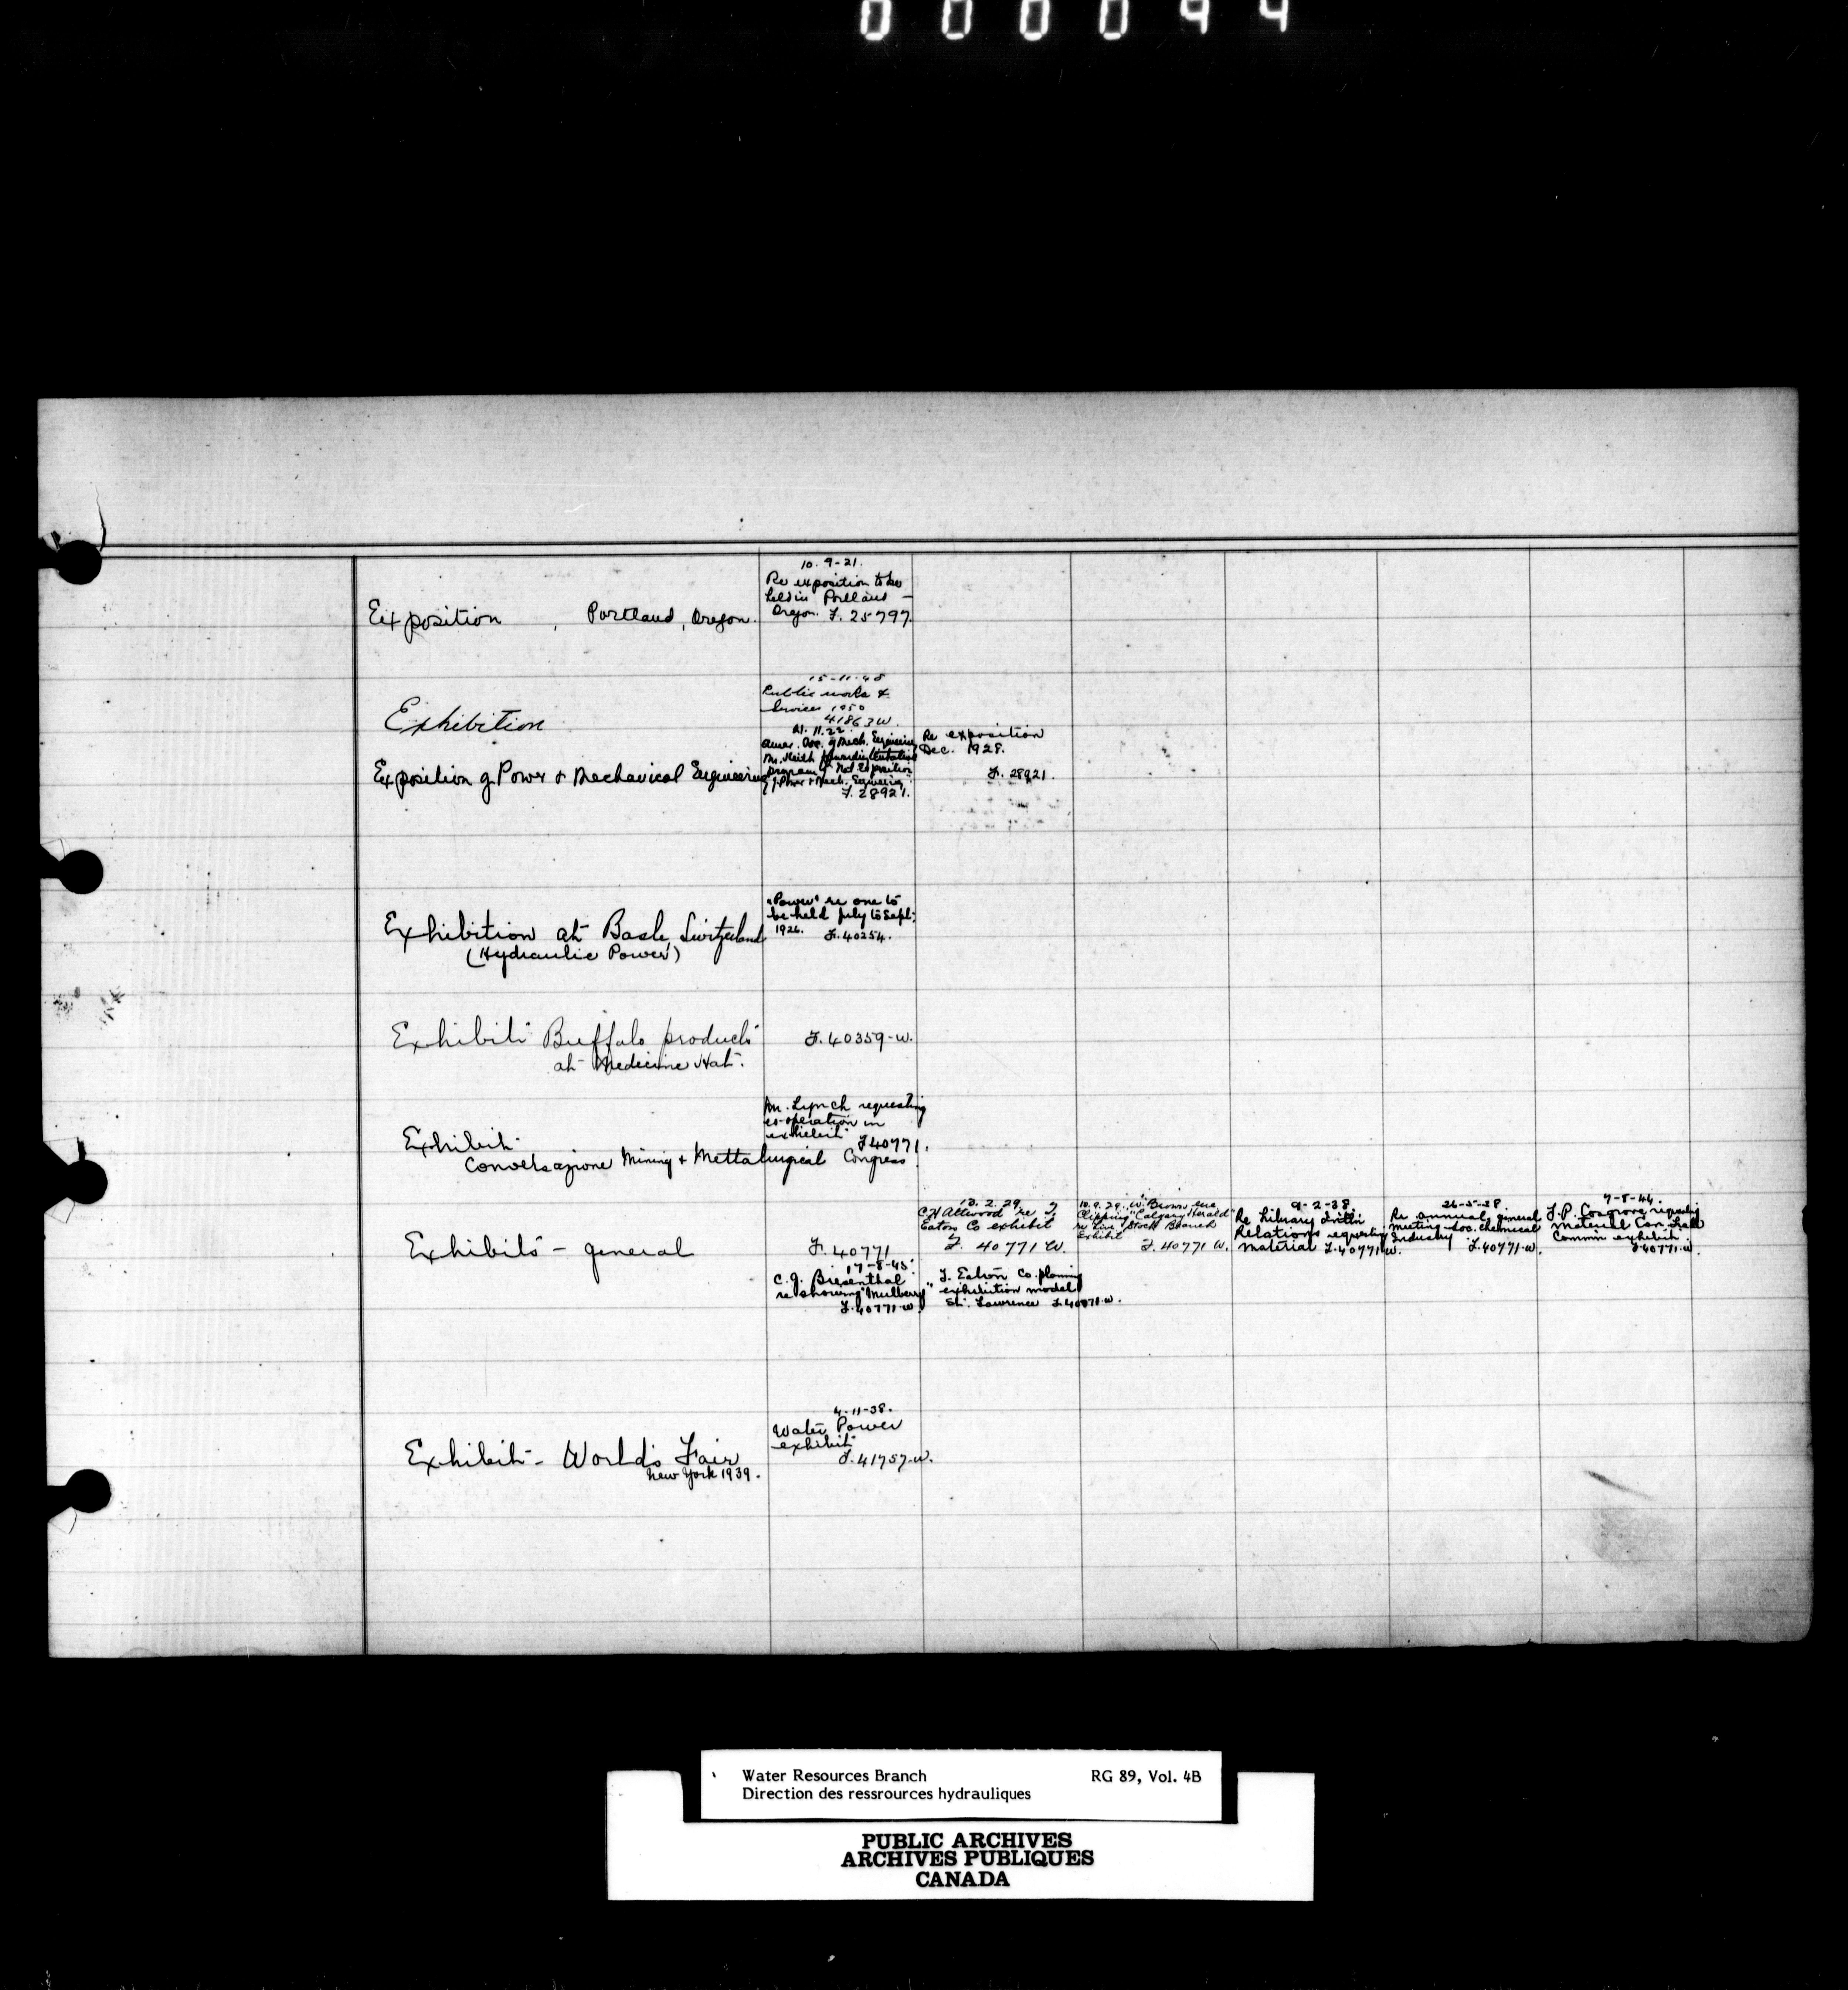 000094
10.9-21.
Re exposition to be
held in Portland -
Oregon. F. 25797.
Exposition , Portland, Oregon.
15-11-48
Public works &
Services 1950
41863W.
Exhibition
21.11.22.
Amer. Soc. of Mech. Engineering
Mr. Keith forwarding tentative
program of Nat Exposition
of Power & Mech. Engineering.
F. 28921.
Re exposition
Dec. 1928.
F. 28921.
Exposition of Power & Mechanical Engineering
"Power" re one to
be held July to Sept.
1926. F. 40254.
Exhibition at Basle, Switzerland
(Hydraulic Power)
Exhibit Buffalo products
at Medicine Hat.
F. 40359-W.
Mr. Lynch requesting
co-operation in
exhibit F40771.
Exhibit
Conversazione Mining & Mettalurgical Congress
Exhibits - general
F. 40771
13.2.29.
C H Attwood re T.
Eaton Co exhibit
F. 40771 W.
10.9.29. W. Brown
Clipping "Calgary Herald"
re Live Stock Branch
Exhibit
F. 40771 W.
9-2-38.
Re Library
Relations requesting
material F.40771W.
26-5-38
Re annual general
meeting Soc. Chemical
Industry F.40771-W.
7-8-44.
J.P. Cosgrove requesting
material
Commn exhibit
F.40771-W.
17-8-45.
C.J. Bresenthal
re showing "Mulberry"
F.40771-W.
T. Eaton Co. planning
exhibition model
St. Lawrence F.40771-W.
4-11-38.
Water Power
exhibit
F. 41757-W.
Exhibit - World's Fair
New York 1939.
Water Resources Branch RG 89, Vol. 4B
Direction des ressrources hydrauliques
PUBLIC ARCHIVES
ARCHIVES PUBLIQUES
CANADA